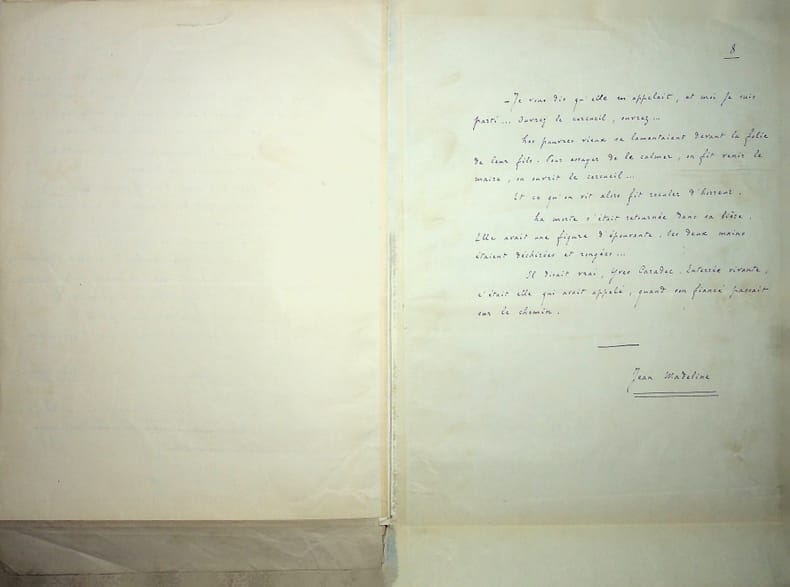 8
– Je vous dis qu'elle m'appelait, et moi je suis
parti... Ouvrez le cercueil, ouvrez...
Les pauvres vieux se lamentaient devant la folie
de leur fils. Pour essayer de le calmer, on fit venir le
maire, on ouvrit le cercueil...
Et ce qu'on vit alors fit reculer d'horreur.
La morte s'était retournée dans sa bière.
Elle avait une figure d'épouvante, les deux mains
étaient déchirées et rongées...
Il disait vrai, Yves Caradec. Enterrée vivante,
c'était elle qui avait appelé, quand son fiancé passait
sur le chemin.
Jean Madeline